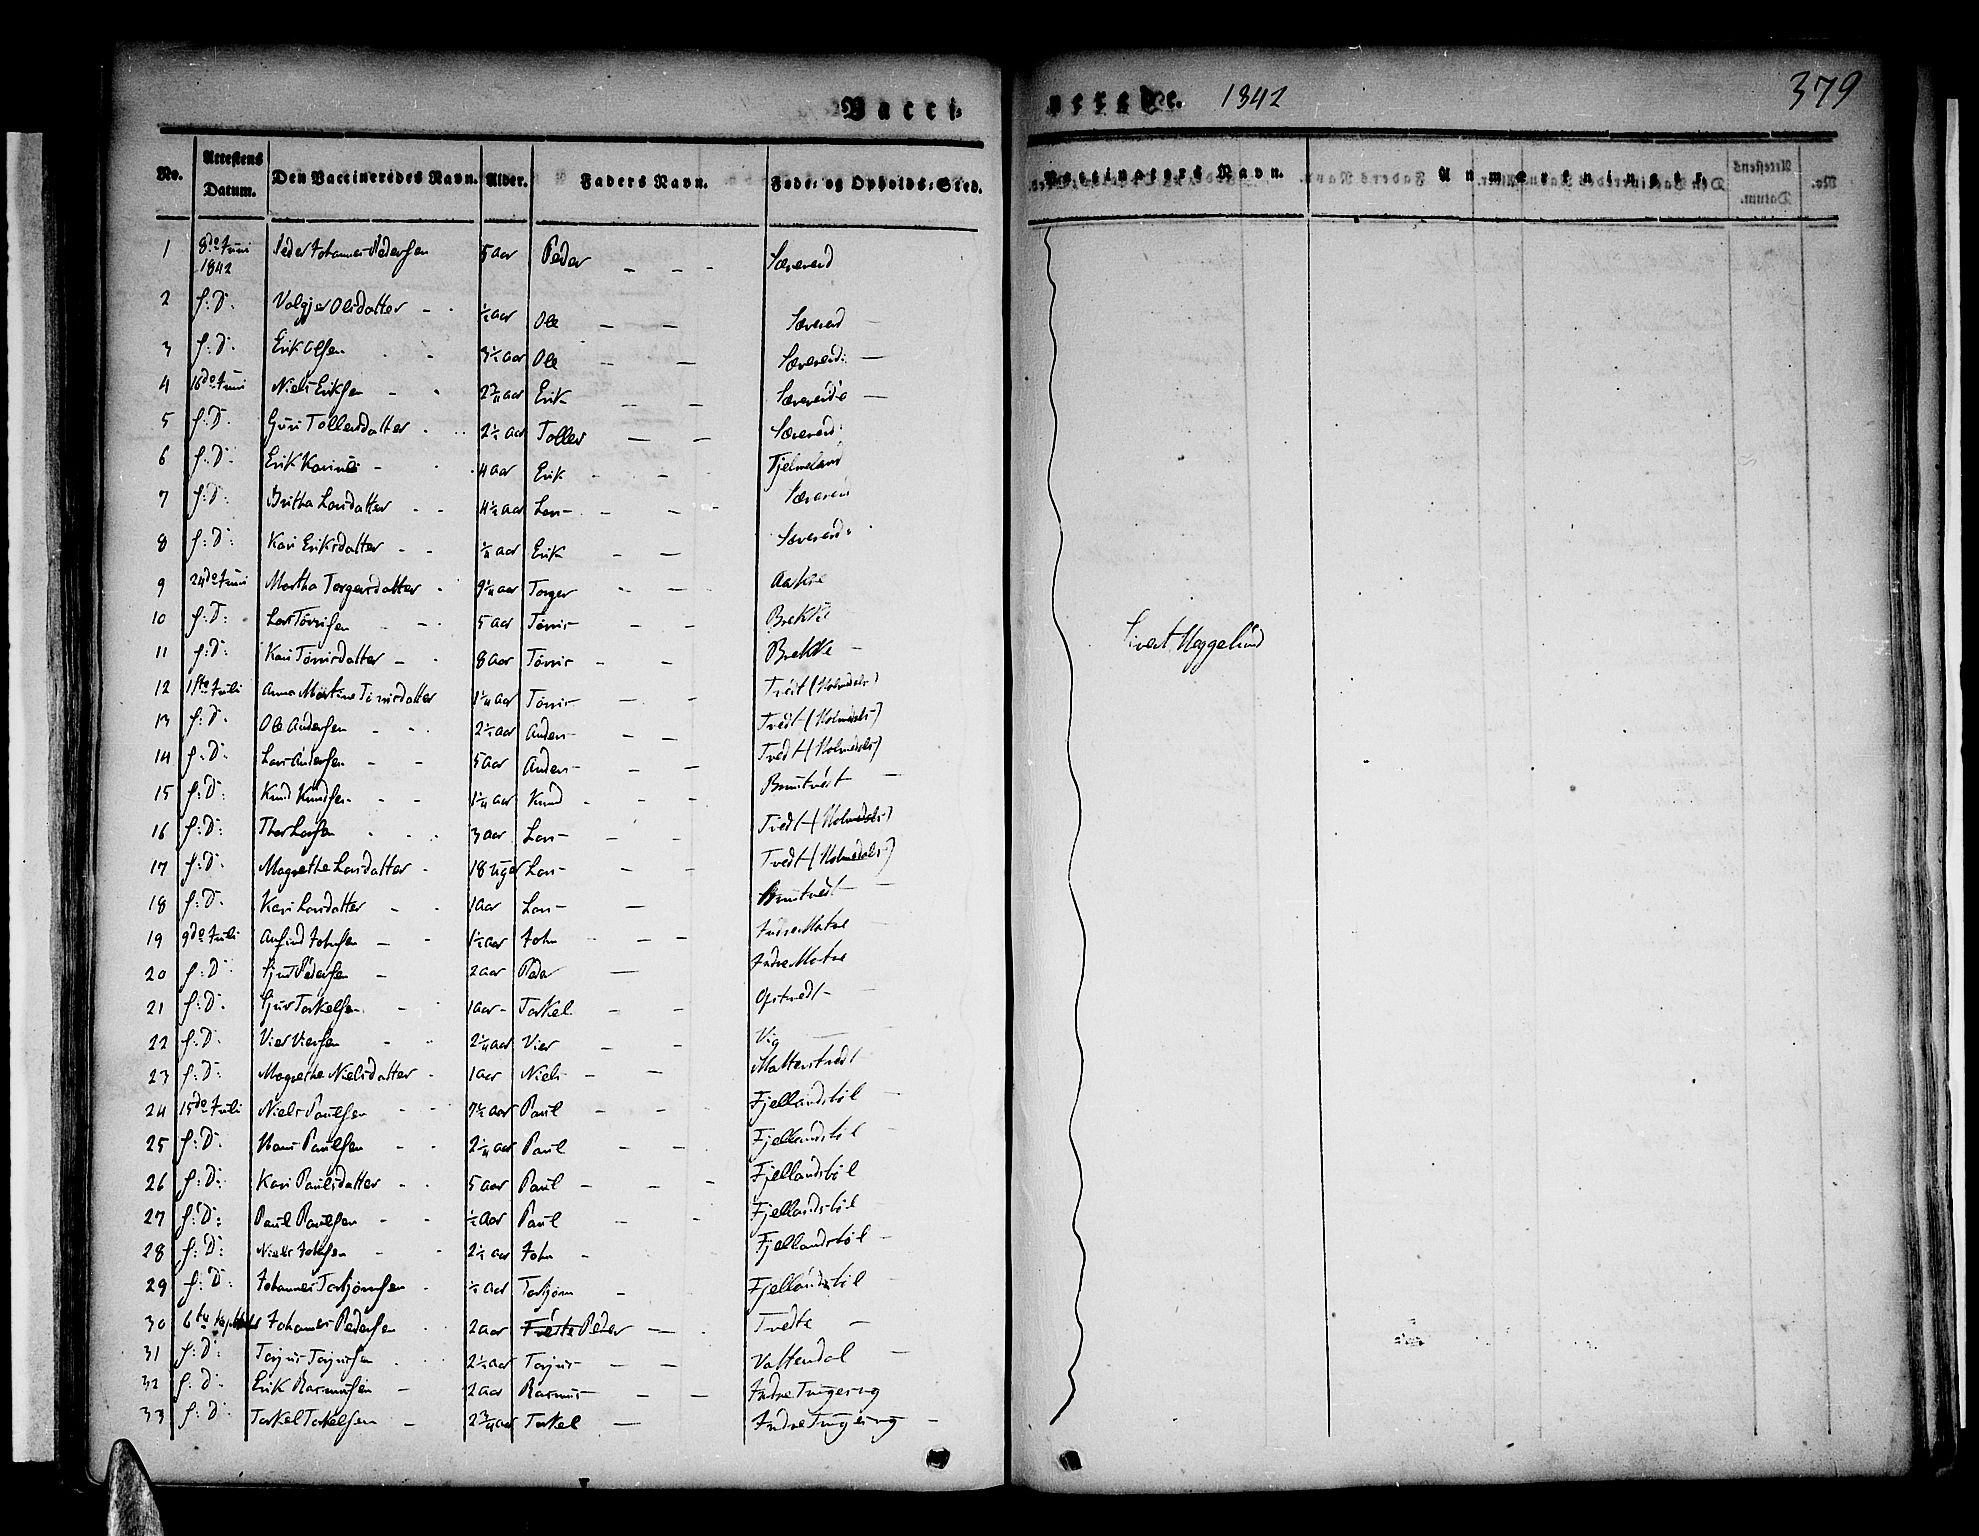 Vaccinerede. 1842
379
No. Attestens Datum. Den Vaccineredes Navn. Alder. Faders Navn. Føde- og Opholds-Sted. Vaccinators Navn. Anmærkninger.
1 8de Juni 1842 Peder Johannes Pedersen 5 aar Peder - - - Sævereid
2 s: D. Valgjer Olsdatter - - ½ aar Ole - - Sævereid -
3 s: D. Erik Olsen - - 3½ aar Ole - - Sævereid: -
4 16de Juni Niels Eriksen - - 2 3/4 aar Erik - - Sævereide -
5 s: D. Guri Tollevsdatter - 2½ aar Tollev - - Sævereid:
6 s: D. - 4 aar Erik - - Fjelmeland
7 s: D. Britha Larsdatter - - 4½ aar Lars - - - Sævereid
8 s: D: Kari Eriksdatter - - ¼ aar Erik - - Sævereid:
9 24de Juni Martha Torgersdatter - 9¼ aar Torger - - Aakre
10 s: D: Lars Tørrissen - - 5 aar Tørris - - Brekke
11 s: D: Kari Tørrisdatter - - 8 aar Tørris - - Brekke -
12 1ste Juli Anna Martine Tørrisdatter 1¼ aar Tørris - - Tvedt (Holmedals)
13 s: D. Ole Andersen - - 2½ aar Anders - - Tvedt (Holmedals)
14 s: D. Lars Andersen - - 5 aar Anders - - Tvedt (Holmedals)
15 s: D: Knud Knudsen - - 1¼ aar Knud - - - Bruntvedt -
16 s: D: Thor Larsen - - 3 aar Lars - - - Tvedt (Holmedals)
17 s: D: Magrethe Larsdatter - 18 Uger Lars - - - Tvedt (Holmedals)
18 s: D. Kari Larsdatter - - 1 aar Lars - - Bruntvedt -
19 9de Juli Anfind Johnsen - - 1½ aar John - - - Indre Matre
20 s: D. Sjur Pedersen - 2 aar Peder - Indre Matre
21 s: D. Sjur Torkelsen - 1 aar - Torkel - - Opstvedt -
22 s: D. Vier Viersen - - 2¼ aar Vier - - Vig -
23 s: D: Magrethe Nielsdatter - 1 aar Niels - - Matterstvedt
24 15de Juli Niels Paulsen - - 7½ aar Paul - - Fjellandsbøl -
25 s: D. Hans Paulsen - - 2¼ aar Paul - - Fjellandsbøl -
26 s: D: Kari Paulsdatter - - 5 aar Paul - - - Fjellandsbøl
27 s: D: Paul Paulsen - - ½ aar Paul - - Fjellandsbøl
28 s: D: Niels Johnsen - - 2½ aar John - Fjellandsbøl -
29 s: D: Johannes Torbjørnsen - ½ aar Torbjørn - Fjellandsbøl -
30 6te September Johannes Pedersen - - 2 aar Peder - - Tvedte -
31 s: D: Torjus Torjussen - 2½ aar Torjus - - Vattendal -
32 s: D. Erik Rasmussen - 2 aar Rasmus - - - Indre Tungesvig
33 s: D. Torkel Torkelsen - 2 3/4 aar Torkel - Indre Tungesvig -
Sivert Heggelund